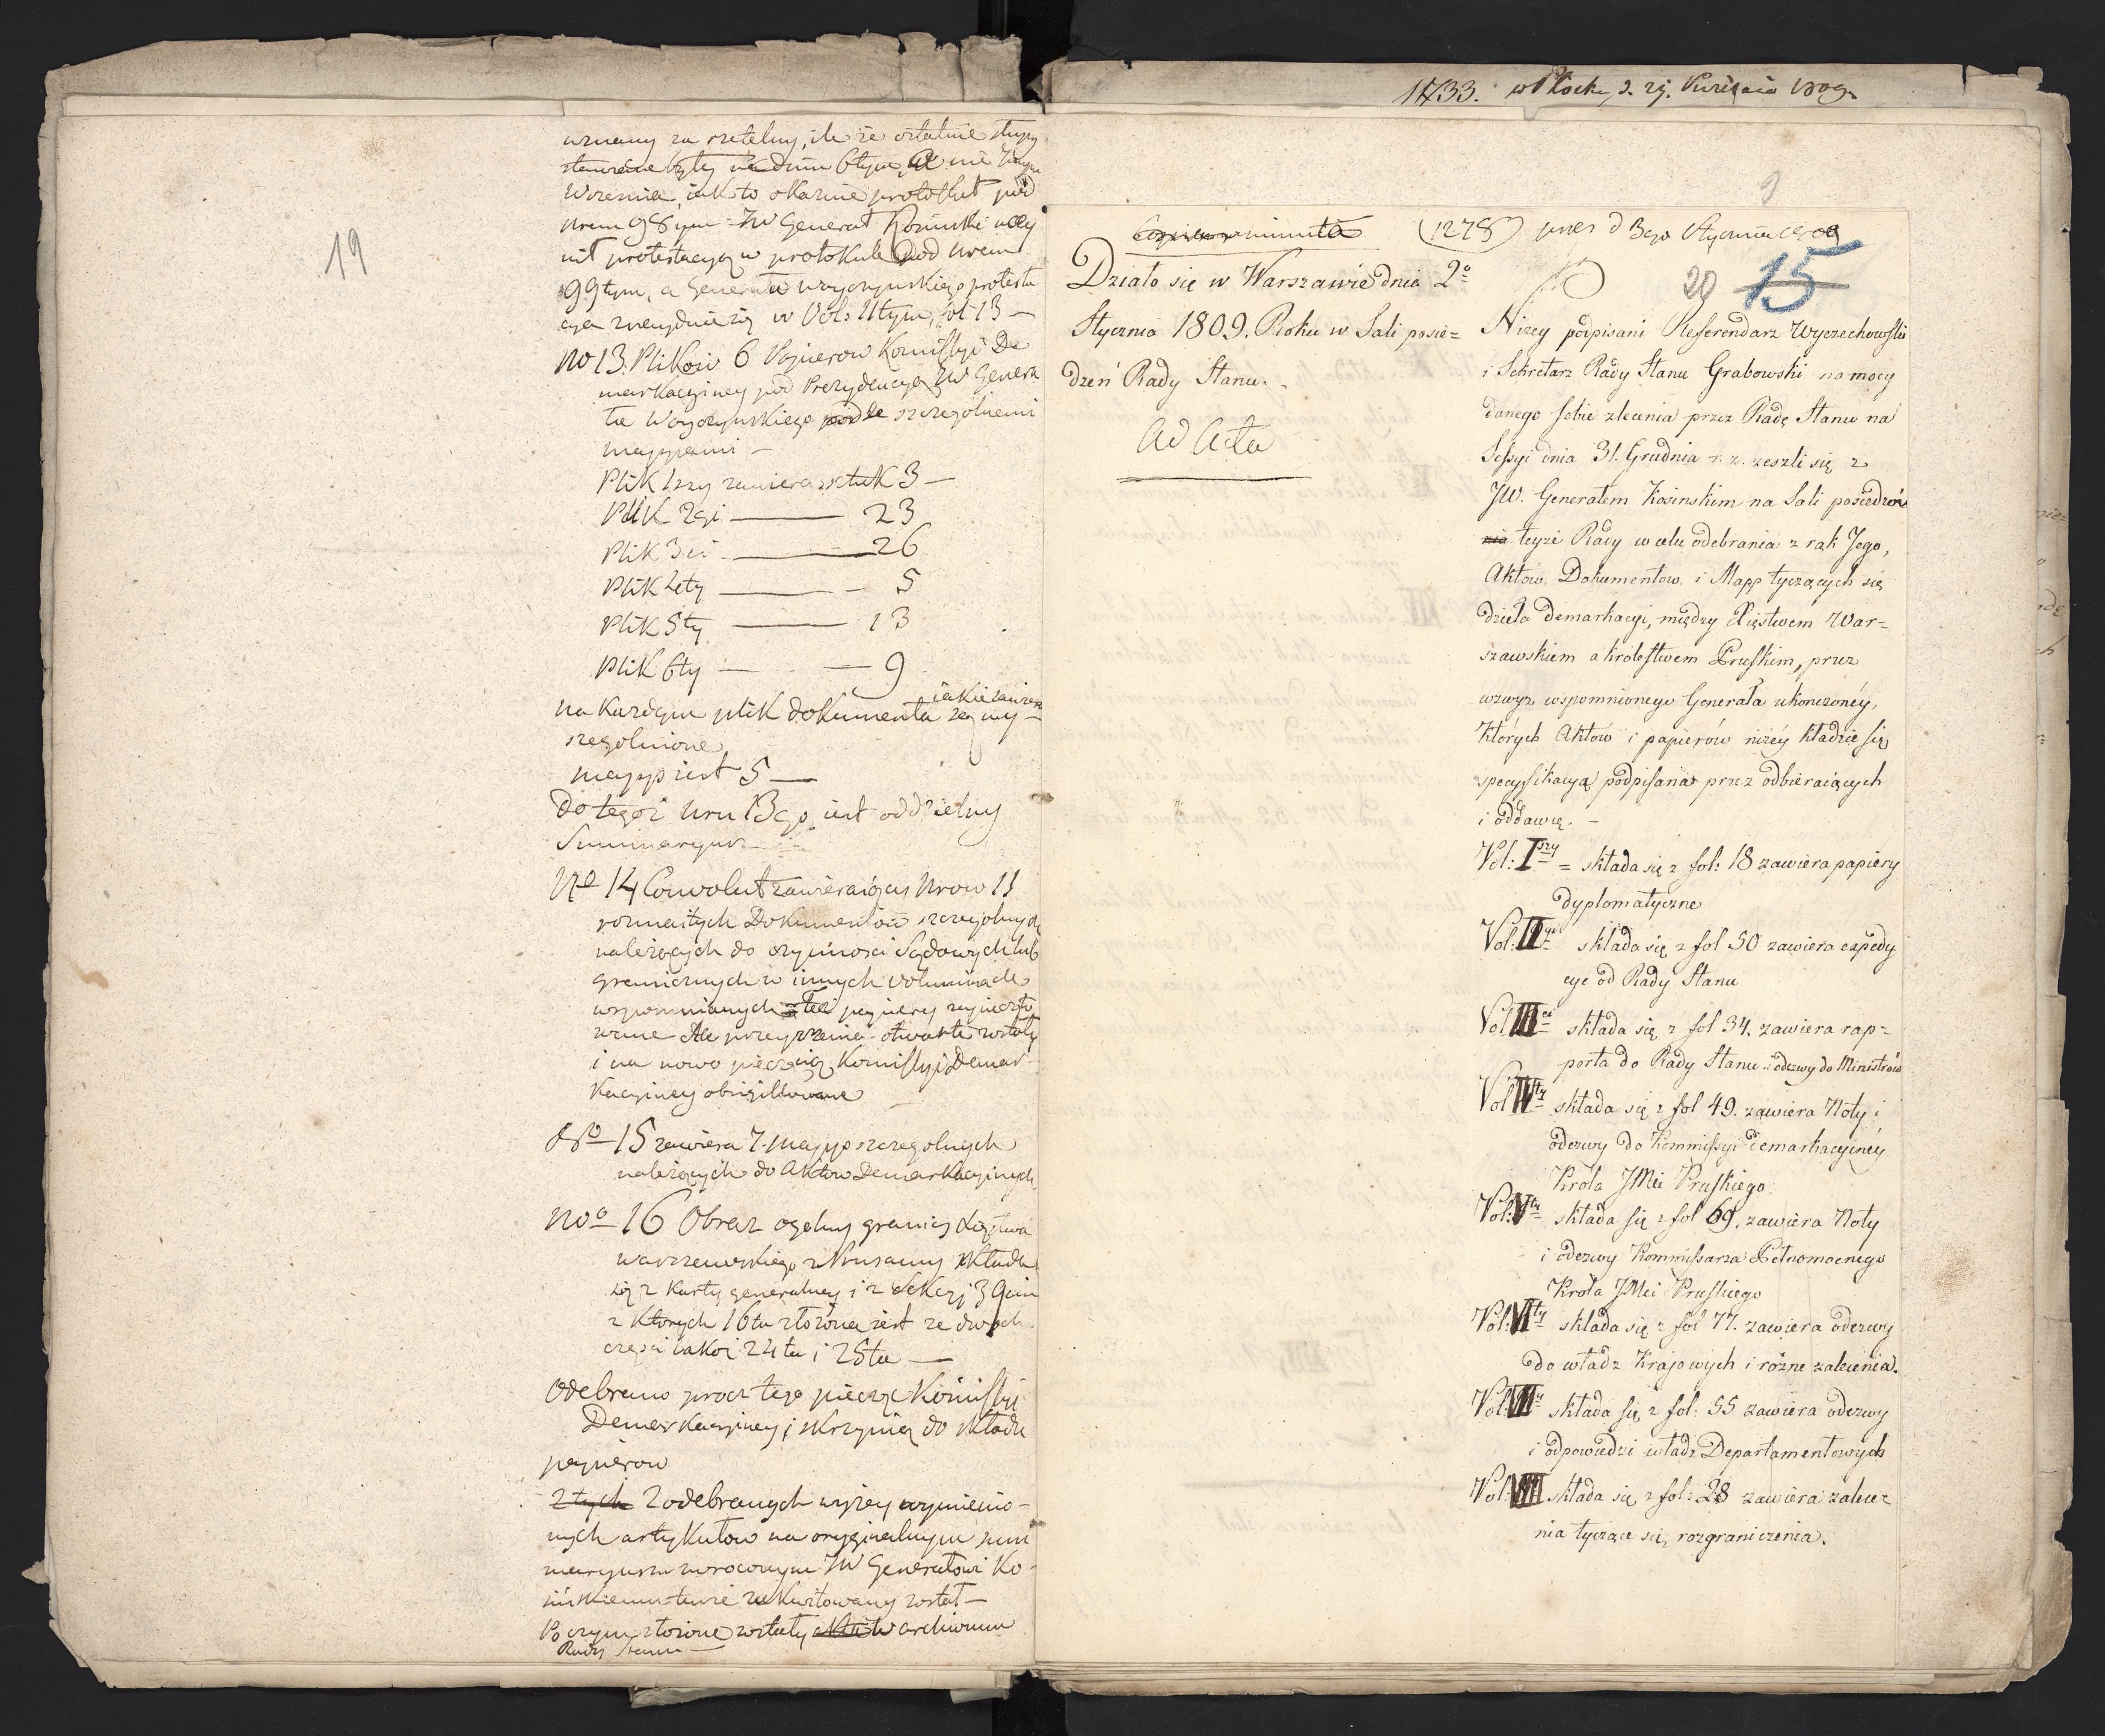 19
uznany za rzetelny, ile że ostatnie słupy
stawiane były na dniu 6tym, a nie
Wrzesnia, iak to okazuie protokuł pod
Nrem 98ym JW Generał Kosinski uczy
nił protestacyą w protokule pod Nrem
99tym, a Generała Woyczynskiego protesta
cya znayduie się w Vol: 11tym, fol 13 —
No 13. Plikow 6 Papierow Komissyi De
markacyiney pod Prezydencyą JW Genera
ła Woyczynskiego podle szczegolnemi
mappami —
Plik 1szy zawiera sztuk 3 —
Plik 2gi — 23
Plik 3ci — 26
Plik 4ty — 5
Plik 5ty — 13
Plik 6ty — 9
iakie zawiera
na każdym plik dokumenta są wy-
szegolnione
mapp iest 5 —
Do tegoż Nru 13go iest oddzielny
Summaryusz
No 14 Convolut zawieraiący Nrow 11
rozmaitych Dokumentow szczegolnych
należących do czynnosci Sądowych lub
granicznych w innych Voluminach
wspomnianych te papiery
wane dla przeyrzenia otwarte zostały
i na nowo pieczęcią Komissyi Demar-
kacyiney obsigillowane
No 15 zawiera 7 mapp szczegolnych
należących do Aktow Demarkacyinych
Noo 16 Obraz ogolny granicy Xięstwa
warszawskiego z Prusamy składa
się z karty generalney i z Sekcyi 39ciu
z ktorych 16ta złożona iest ze dwoch
części iakoż 24ta i 25ta —
Odebrano procz tego pieczęć Komissyi
Demarkacyiney i skrzynią do składu
papierow
z tych Z odebranych wyżey wymienio-
nych artykułow na oryginalnym sum
maryuszu zwroconym JW Generałowi Ko-
sinskiemu tenże zakwitowany został —
Po czym złożone zostały akta w archiwum
Rady Stanu —
11733. w Płocku, d. 29. Kwietnia 1809.
9
minuta
1278 prez d 3go Stycznia 1809
29 15
Działo się w Warszawie dnia 2o
Stycznia 1809. Roku w Sali posie=
dzeń Rady Stanu. -
Ad Acta
Niżey podpisani Referendarz Wyczechowski
i Sekretarz Rady Stanu Grabowski na mocy
danego sobie zlecenia przez Radę Stanu na
Sessyi dnia 31. Grudnia r. z. zeszli się z
JW. Generałem Kosinskim na Sali posiedzeń
nia teyże Rady w celu odebrania z rąk Jego,
Aktów, Dokumentow, i Mapp tyczących się
dzieła Demarkacyi, między Xięstwem War=
szawskiem a Królestwem Pruskim, przez
wzwyż wspomnionego Generała ukonczonéy,
których Aktów i papierów niżéy kładzie się
specyfikacyą podpisana przez odbieraiących
i oddawcę. -
Vol: Iszy = składa się z fol: 18 zawiera papiery
dyplomatyczne
Vol: IIgi składa się z fol 50 zawiera expedy
cye od Rady Stanu
Vol IIIci składa się z fol 34. zawiera rap=
porta do Rady Stanu i odezwy do Ministrów
Vol IVty składa się z fol 49. zawiera Noty i
odezwy do Kommissyi demarkacyinéy
Króla JMci Pruskiego
Vol: Vty składa się z fol 69. zawiera Noty
i odezwy Kommissarza Pełnomocnego
Króla JMci Pruskiego
Vol: VIty składa się z fol 77. zawiera odezwy
do władz Krajowych i rożne zalecenia.
Vol: VIIy składa się z fol: 55 zawiera odezwy
i odpowiedzi władz Departamentowych
Vol: VIII składa się z fol: 28 zawiera zalece=
nia tyczące się rozgraniczenia.